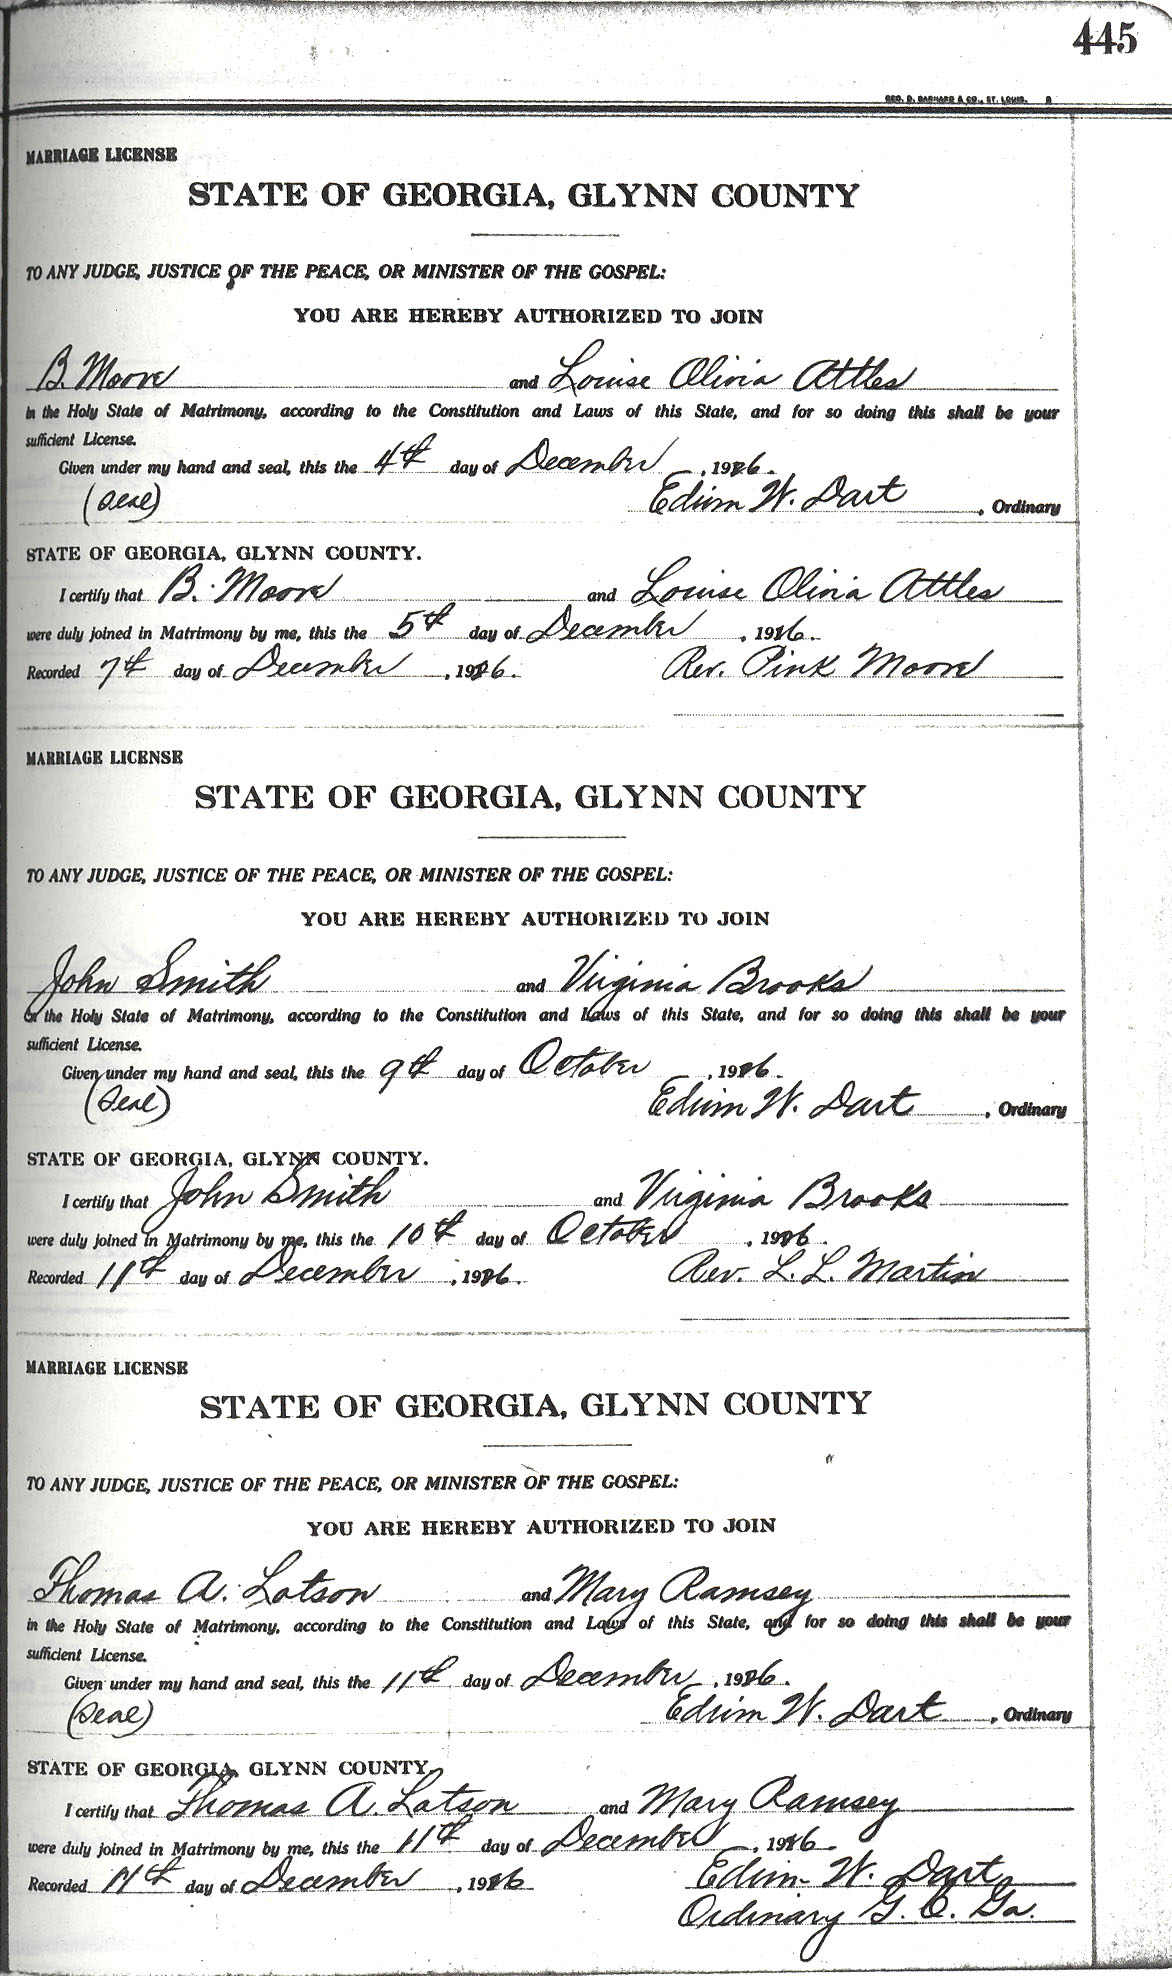 445
GEO. D. BARNARD & CO., ST. LOUIS.
MARRIAGE LICENSE
STATE OF GEORGIA, GLYNN COUNTY
TO ANY JUDGE, JUSTICE OF THE PEACE, OR MINISTER OF THE GOSPEL:
YOU ARE HEREBY AUTHORIZED TO JOIN
B. Moore and Louise Olivia Attles
in the Holy State of Matrimony, according to the Constitution and Laws of this State, and for so doing this shall be your
sufficient License.
Given under my hand and seal, this the 4th day of December, 1926.
(Seal) Edwin W. Dart, Ordinary
STATE OF GEORGIA, GLYNN COUNTY.
I certify that B. Moore and Louise Olivia Attles
were duly joined in Matrimony by me, this the 5th day of December, 1926.
Recorded 7th day of December, 1926. Rev. Pink Moore
MARRIAGE LICENSE
STATE OF GEORGIA, GLYNN COUNTY
TO ANY JUDGE, JUSTICE OF THE PEACE, OR MINISTER OF THE GOSPEL:
YOU ARE HEREBY AUTHORIZED TO JOIN
John Smith and Virginia Brooks
in the Holy State of Matrimony, according to the Constitution and Laws of this State, and for so doing this shall be your
sufficient License.
Given under my hand and seal, this the 9th day of October, 1926.
(Seal) Edwin W. Dart, Ordinary
STATE OF GEORGIA, GLYNN COUNTY.
I certify that John Smith and Virginia Brooks
were duly joined in Matrimony by me, this the 10th day of October, 1926.
Recorded 11th day of December, 1926. Rev. L. L. Martin
MARRIAGE LICENSE
STATE OF GEORGIA, GLYNN COUNTY
TO ANY JUDGE, JUSTICE OF THE PEACE, OR MINISTER OF THE GOSPEL:
YOU ARE HEREBY AUTHORIZED TO JOIN
Thomas A. Latson and Mary Ramsey
in the Holy State of Matrimony, according to the Constitution and Laws of this State, and for so doing this shall be your
sufficient License.
Given under my hand and seal, this the 11th day of December, 1926.
(Seal) Edwin W. Dart, Ordinary
STATE OF GEORGIA, GLYNN COUNTY.
I certify that Thomas A. Latson and Mary Ramsey
were duly joined in Matrimony by me, this the 11th day of December, 1926.
Recorded day of December, 1926 Edwin W. Dart
Ordinary G. C. Ga.